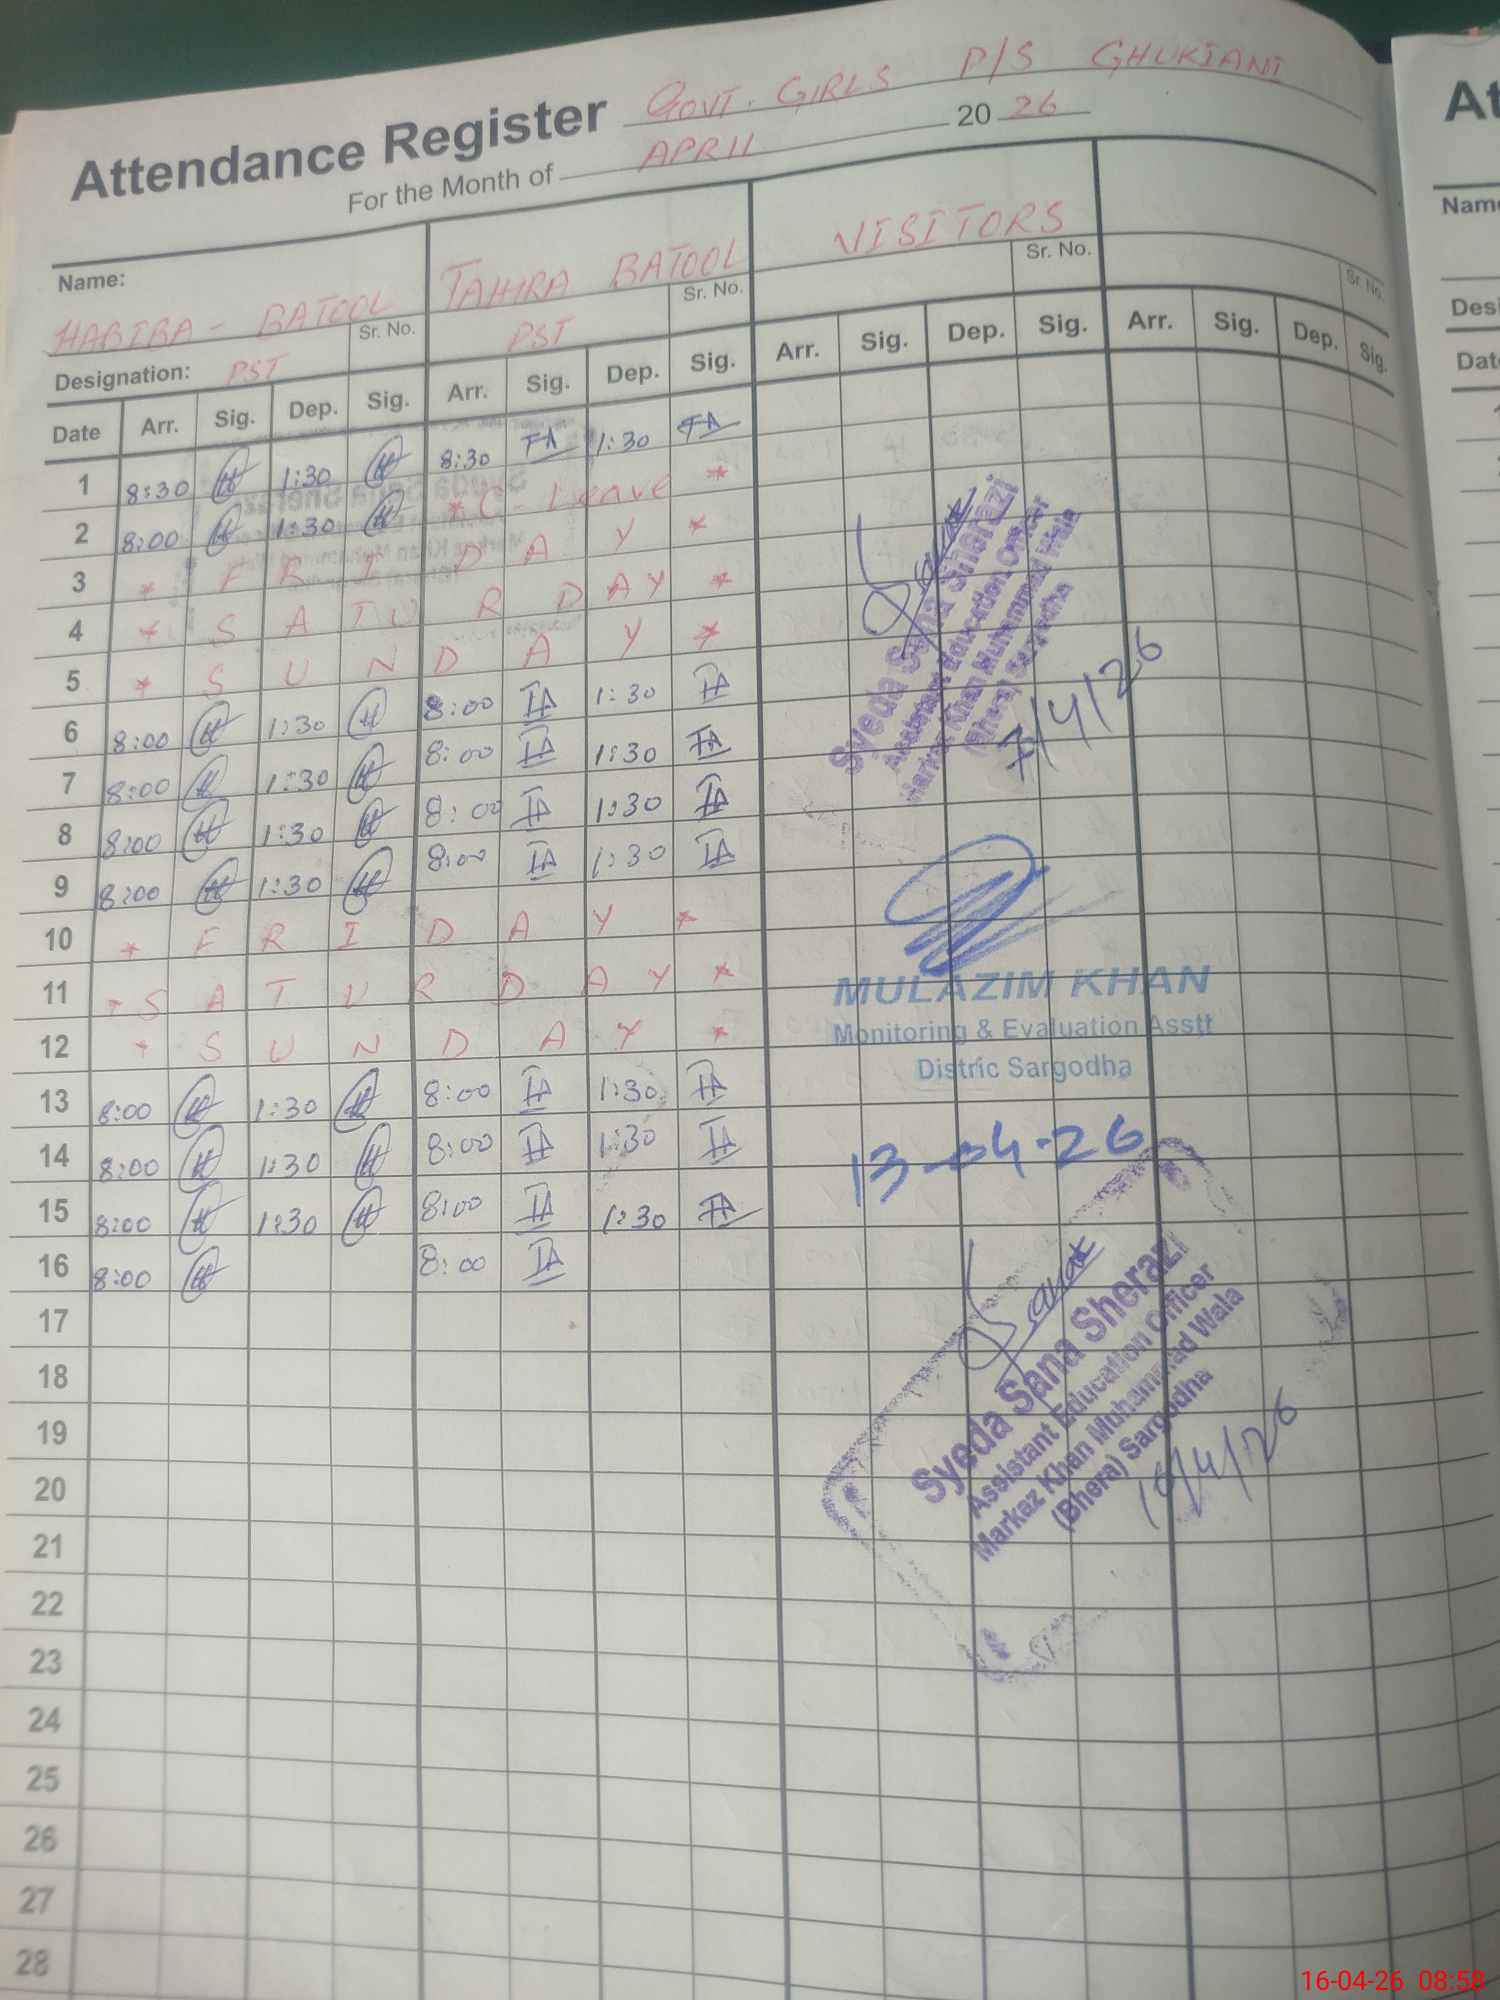 Attendance Register GOVT. GIRLS P/S GHUKIANI
For the Month of APRIL 20 26
Name: HABIBA - BATOOL TAHIRA BATOOL VISITORS
Sr. No. Sr. No. Sr. No. Sr. No.
Designation: PST PST
Date Arr. Sig. Dep. Sig. Arr. Sig. Dep. Sig. Arr. Sig. Dep. Sig. Arr. Sig. Dep. Sig.
1 8:30 H 1:30 H 8:30 TA 1:30 TA
2 8:00 H 1:30 H * C - Leave *
3 * F R I D A Y *
4 * S A T U R D A Y *
5 * S U N D A Y *
6 8:00 H 1:30 H 8:00 TA 1:30 TA
7 8:00 H 1:30 H 8:00 TA 1:30 TA
8 8:00 H 1:30 H 8:00 TA 1:30 TA
9 8:00 H 1:30 H 8:00 TA 1:30 TA
10 * F R I D A Y *
11 * S A T U R D A Y *
12 * S U N D A Y *
13 8:00 H 1:30 H 8:00 TA 1:30 TA
14 8:00 H 1:30 H 8:00 TA 1:30 TA
15 8:00 H 1:30 H 8:00 TA 1:30 TA
16 8:00 H 8:00 TA
17
18
19
20
21
22
23
24
25
26
27
28
Syeda Sana Sherazi
Assistant Education Officer
Markaz Khan Muhammad Wala
(Bhera) Sargodha
7/4/26
MULAZIM KHAN
Monitoring & Evaluation Asstt
Distric Sargodha
13-04-26
Syeda Sana Sherazi
Assistant Education Officer
Markaz Khan Muhammad Wala
(Bhera) Sargodha
/4/26
At
Name
Desi
Date
16-04-26 08:58